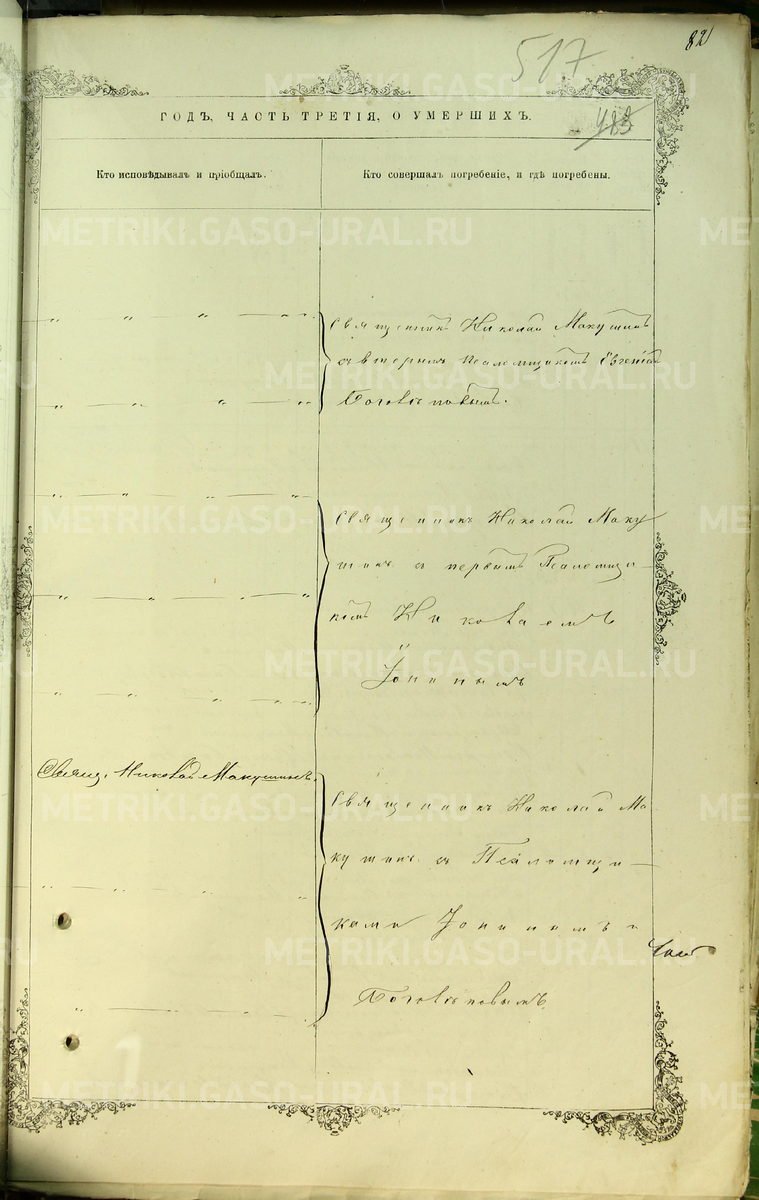 82
517
483
ГОДЪ, ЧАСТЬ ТРЕТІЯ, О УМЕРШИХЪ.
Кто исповѣдывалъ и пріобщалъ.
Кто совершалъ погребеніе, и гдѣ погребены.
Священникъ Николай Макушинъ
съ вторымъ псаломщикомъ Евгеніемъ
Боголѣповымъ.
Священникъ Николай Маку
шинъ съ первымъ Псаломщи
комъ Николаемъ
Іонинымъ
Свящ. Николай Макушинъ.
Священникъ Николай Ма
кушинъ съ Псаломщи
ками Іонинымъ и
Боголѣповымъ
METRIKI.GASO-URAL.RU